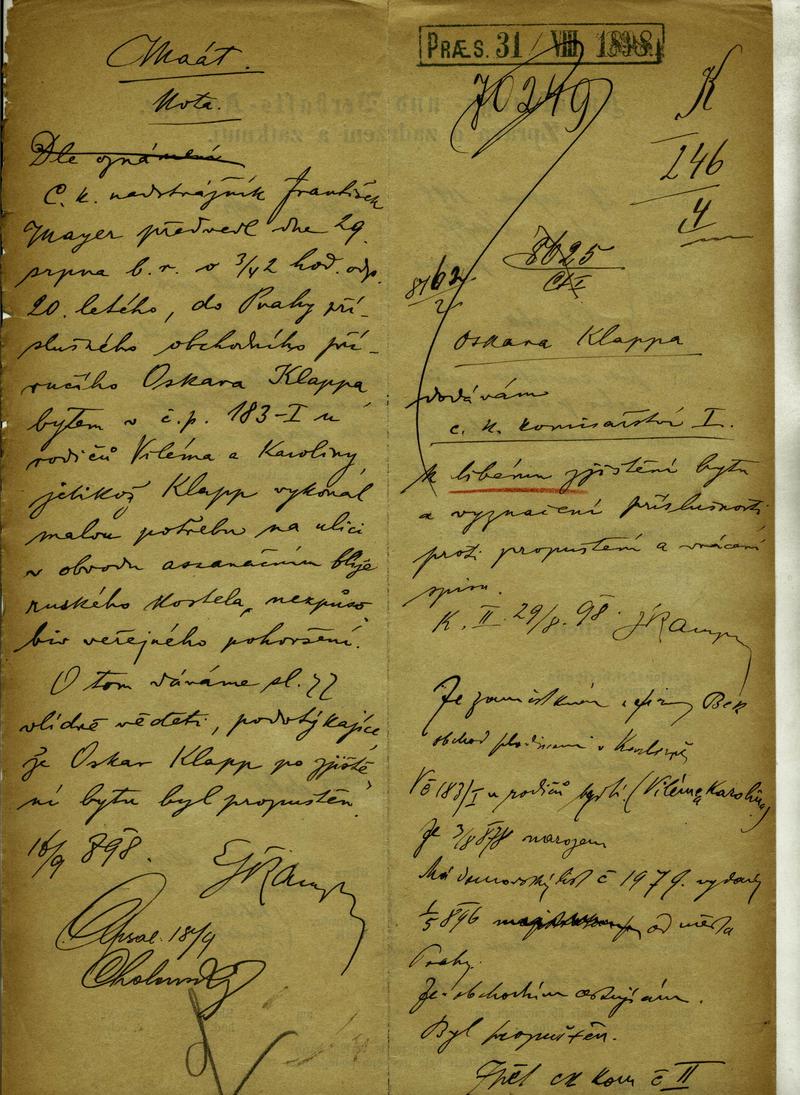 Nota.
Dle oznámení
C. k. nadstrážník František
Mayer předvedl dne 29.
srpna b. r. o 3/4 2 hod. odp.
20. letého, do Prahy pří-
slušného obchodního pří-
ručího Oskara Klappa
bytem v č.p. 183-I u
rodičů Viléma a Karoliny,
jelikož Klapp vykonal
malou potřebu na ulici
v obvodu assanačním blíže
ruského kostela, nezpůso-
biv veřejného pohoršení.
O tom dáváme sl. 77
vlídně věděti, podotýkajíce
že Oskar Klapp po zjiště-
ní bytu byl propuštěn.
16/9 898.
18/9
PRÆS. 31 / VIII 1898.
70249
K
246
4
8625
8162
2
Oskara Klappa
dodávám
c. k. komisařství I.
k libému zjištění bytu
a vyznačení příslušnosti
proti propuštění a vrácení
spisu.
K. II. 29/8. 98.
Je zaměstnán u firmy Beck
obchod v Karlíně
V č 183/I u rodičů bydlí. (Viléma Karolina)
Je 3/8 878 narozen
Má domovský list č 1979. vydaný
1/5 896 od města
Prahy.
Je obchodním cestujícím.
Byl propuštěn.
Zpět ck kom č II